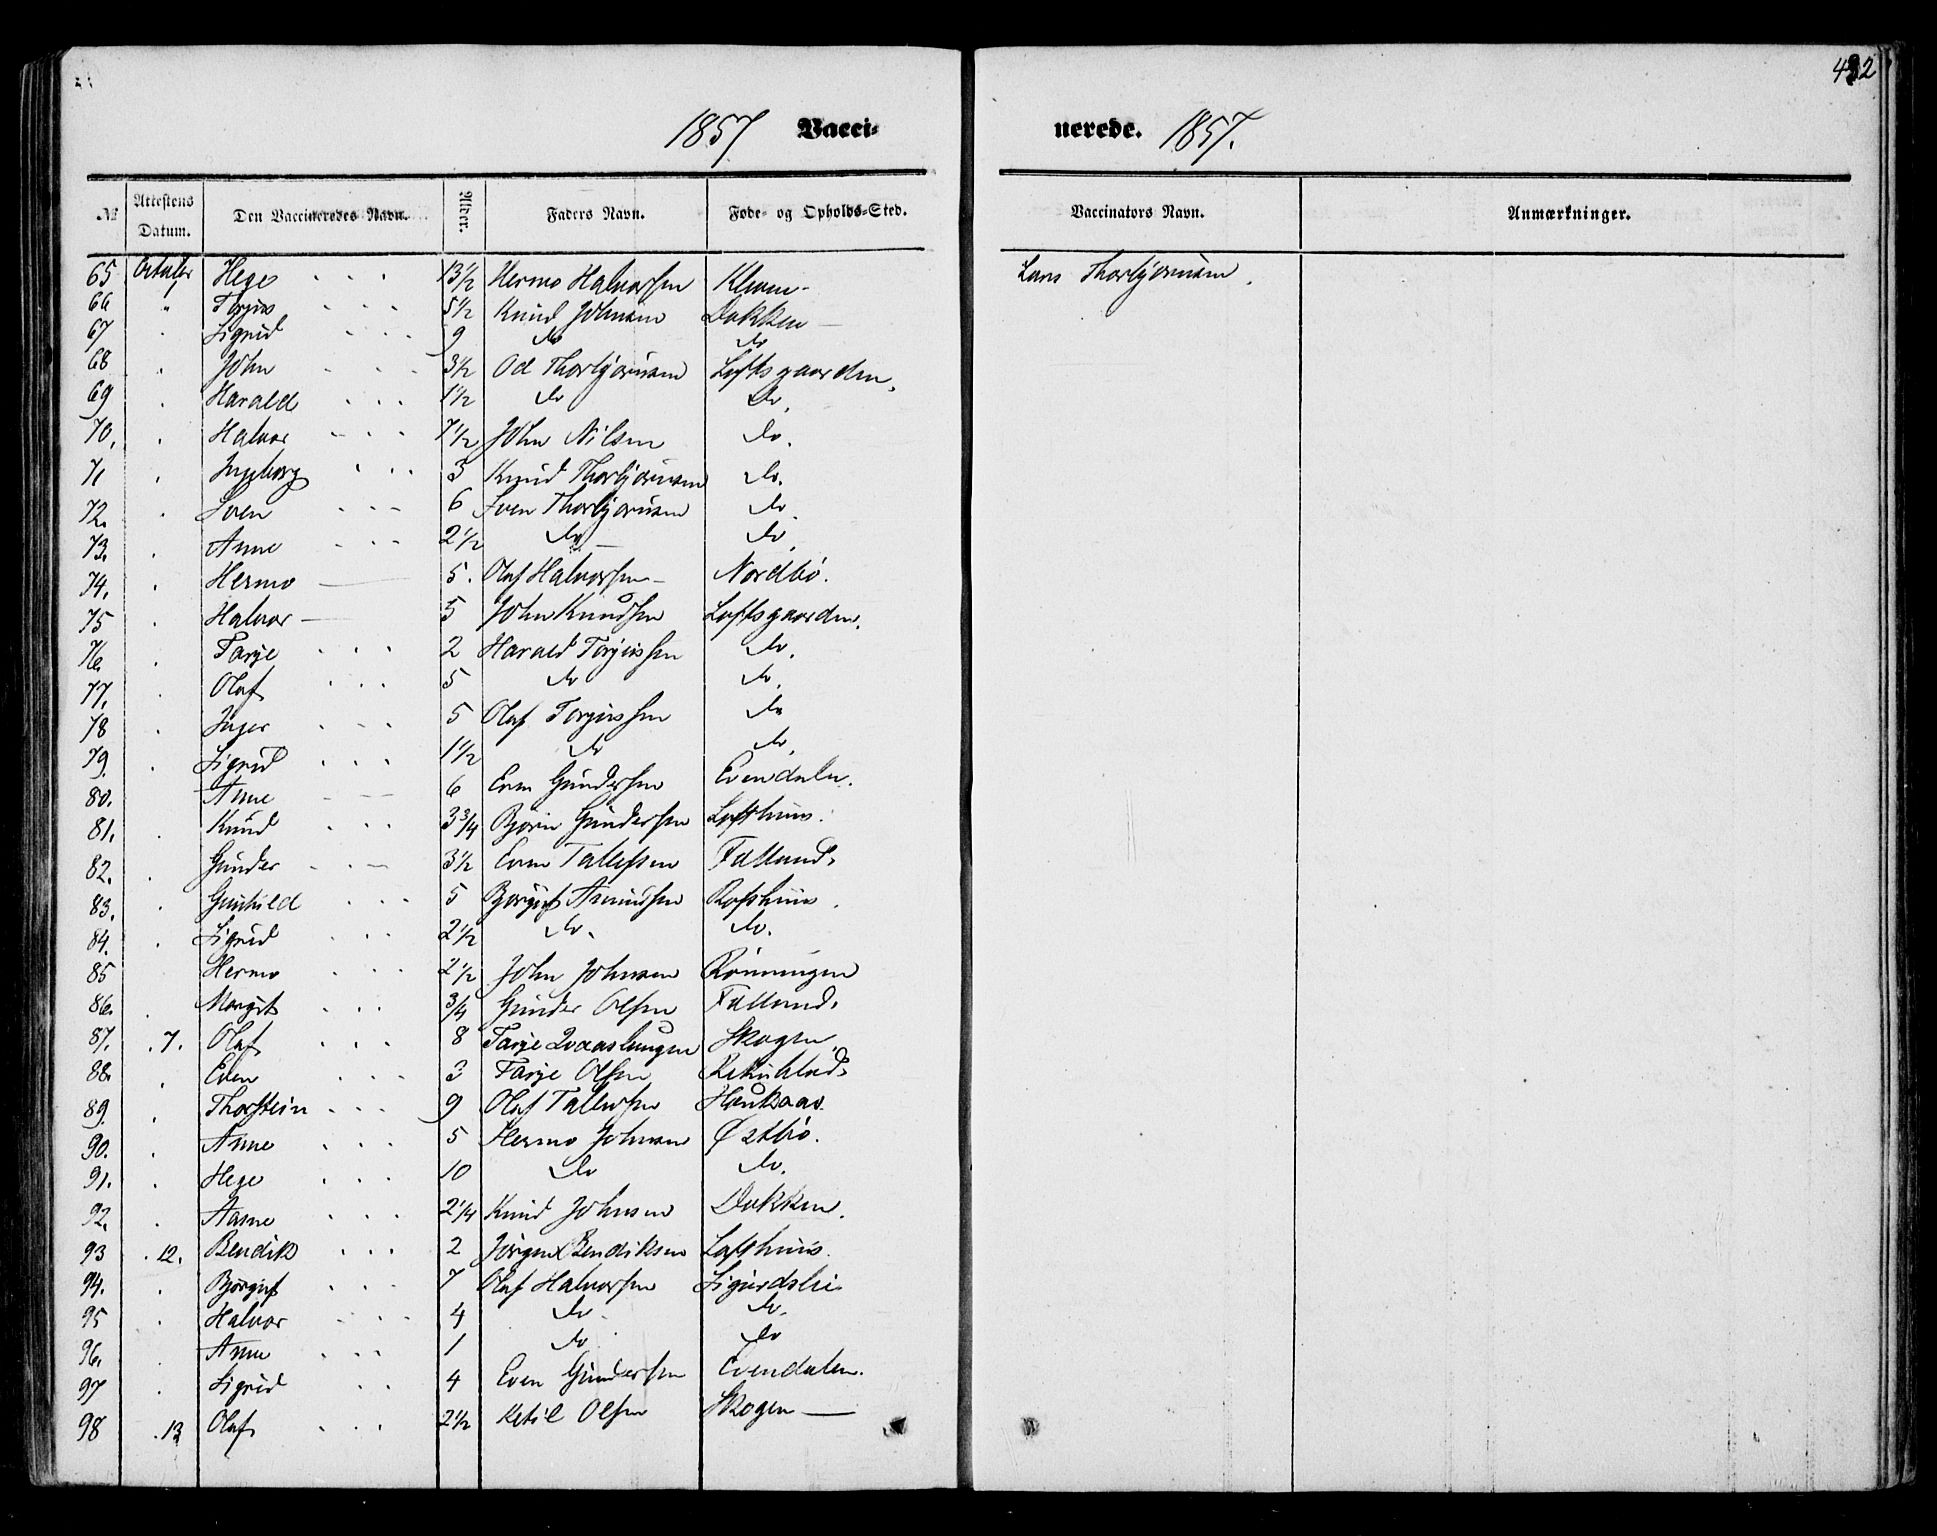 432
1857 Vacci-
nerede. 1857.
№ Attestens Datum. Den Vaccineredes Navn. Alder. Faders Navn. Føde- og Opholds-Sted. Vaccinators Navn. Anmærkninger.
65 October 1 Hege 13½ Hermo Halvorssen Lars Thorbjørnsen.
66 " Torjus 5½ Knud Johnsen Dokken
67 Sigrid 9 do do
68 John 3½ Od Thorbjørnsen Loftsgaarden.
69 Harald 1½ do do.
70. Halvor 7½ John Nilsen do.
71 Ingeborg 3 Knud Thorbjørnsen do.
72. Sven 6 Sven Thorbjørnsen do
73. Anne 2½ do do.
74. Hermo 5. Olaf Halvorssen Nordbö.
75 Halvor 5 John Knudssen Loftsgaarden.
76. Tarje 2 Harald Torjussen do.
77. Olaf 5 do do.
78 Inger 5 Olaf Torjussen do
79. Sigrid 1½ do do.
80. Anne 6 Even Gunderssen Evendalen.
81. Knud 3¾ Bjørn Gunderssen Lofthuus.
82. Gunder 3½ Even Tallefssen Falland.
83. Gunhild 5 Bjorguf Amundssen Rofshuus.
84. Sigrid 2½ do. do.
85 Hermo 2½ John Johnsen Rönningen
86. Margit ¾ Gunder Olssen Falland.
87. 7. Olaf 8 Tarje Skogen
88. Even 3 Tarje Olssen
89. Thorstein 9 Olaf Haukaas.
90. Anne 5 Hermo Johnsen Østbö.
91. Hege 10 do do.
92. Aasne 2¼ Knud Johnsen Dokken.
93 12. Bendik 2 Jörgen Bendiksen Lofthuus.
94. Björguf 7 Olaf Halvorssen Sigurdsli
95 Halvor 4 do do.
96. Anne 1 do do
97 Sigrid 4 Even Gunderssen Evendalen.
98 13 Olaf 2½ Ketil Olssen Skogen